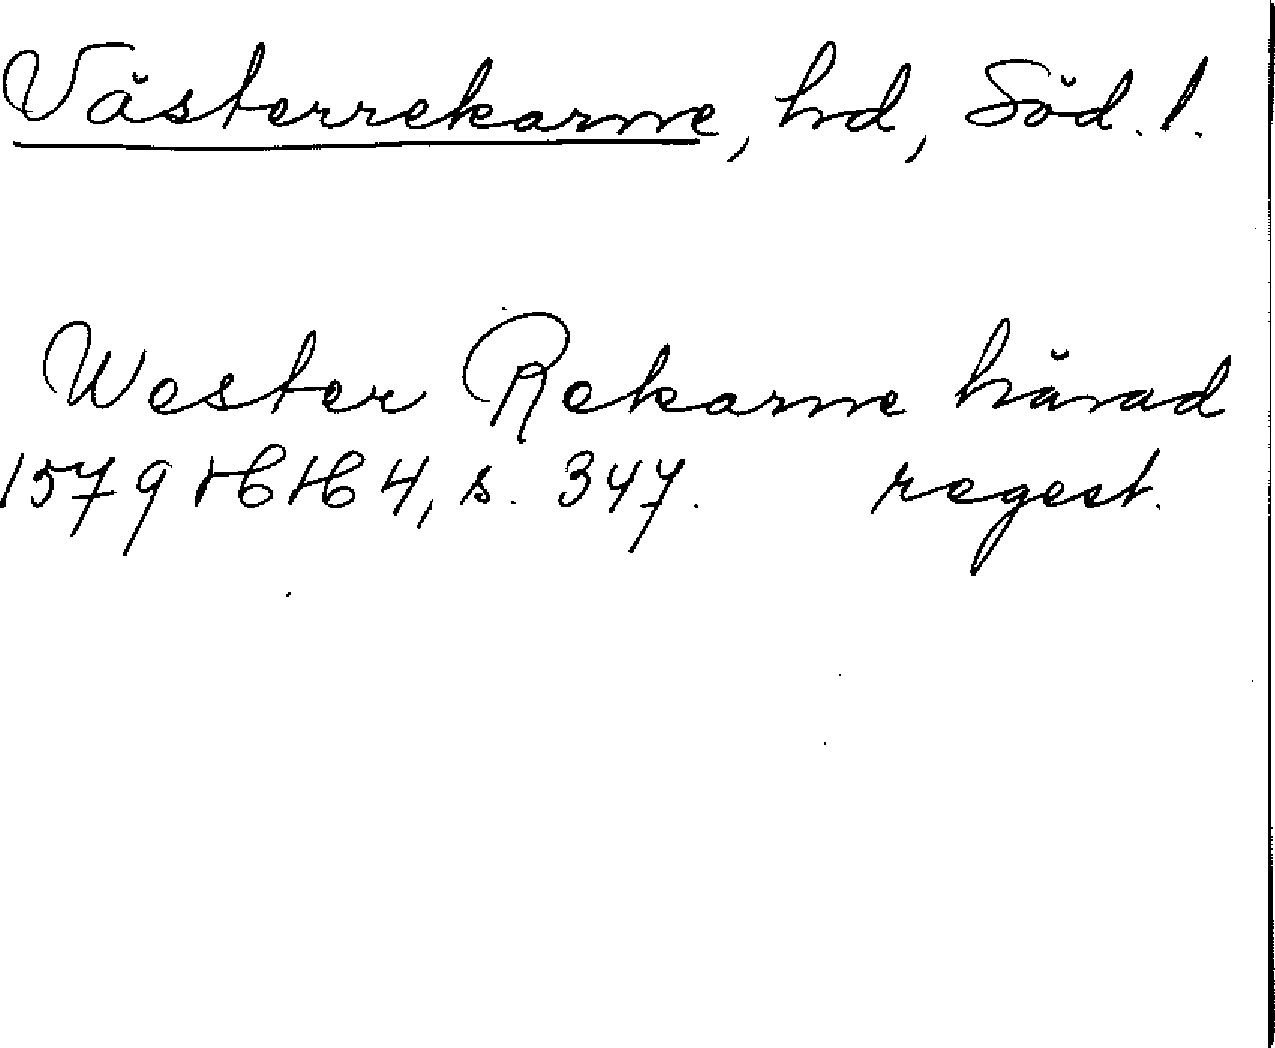 Västerrekarne, hd, Söd. l.
Wester Rekarne härad
1579 HH 4, s. 347. regest.